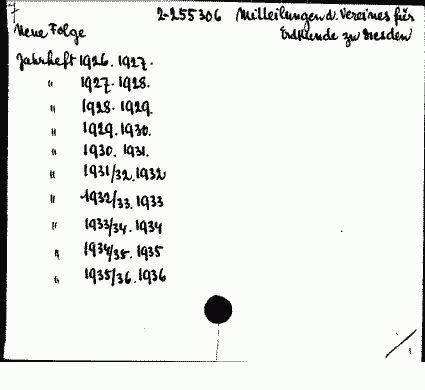 7 2-255306 Mitteilungen d. Vereines für
Neue Folge Erdkunde zu Dresden
Jahrheft 1926. 1927.
" 1927. 1928.
" 1928. 1929.
" 1929. 1930.
" 1930. 1931.
" 1931/32. 1932
" 1932/33. 1933
" 1933/34. 1934
" 1934/35. 1935
" 1935/36. 1936